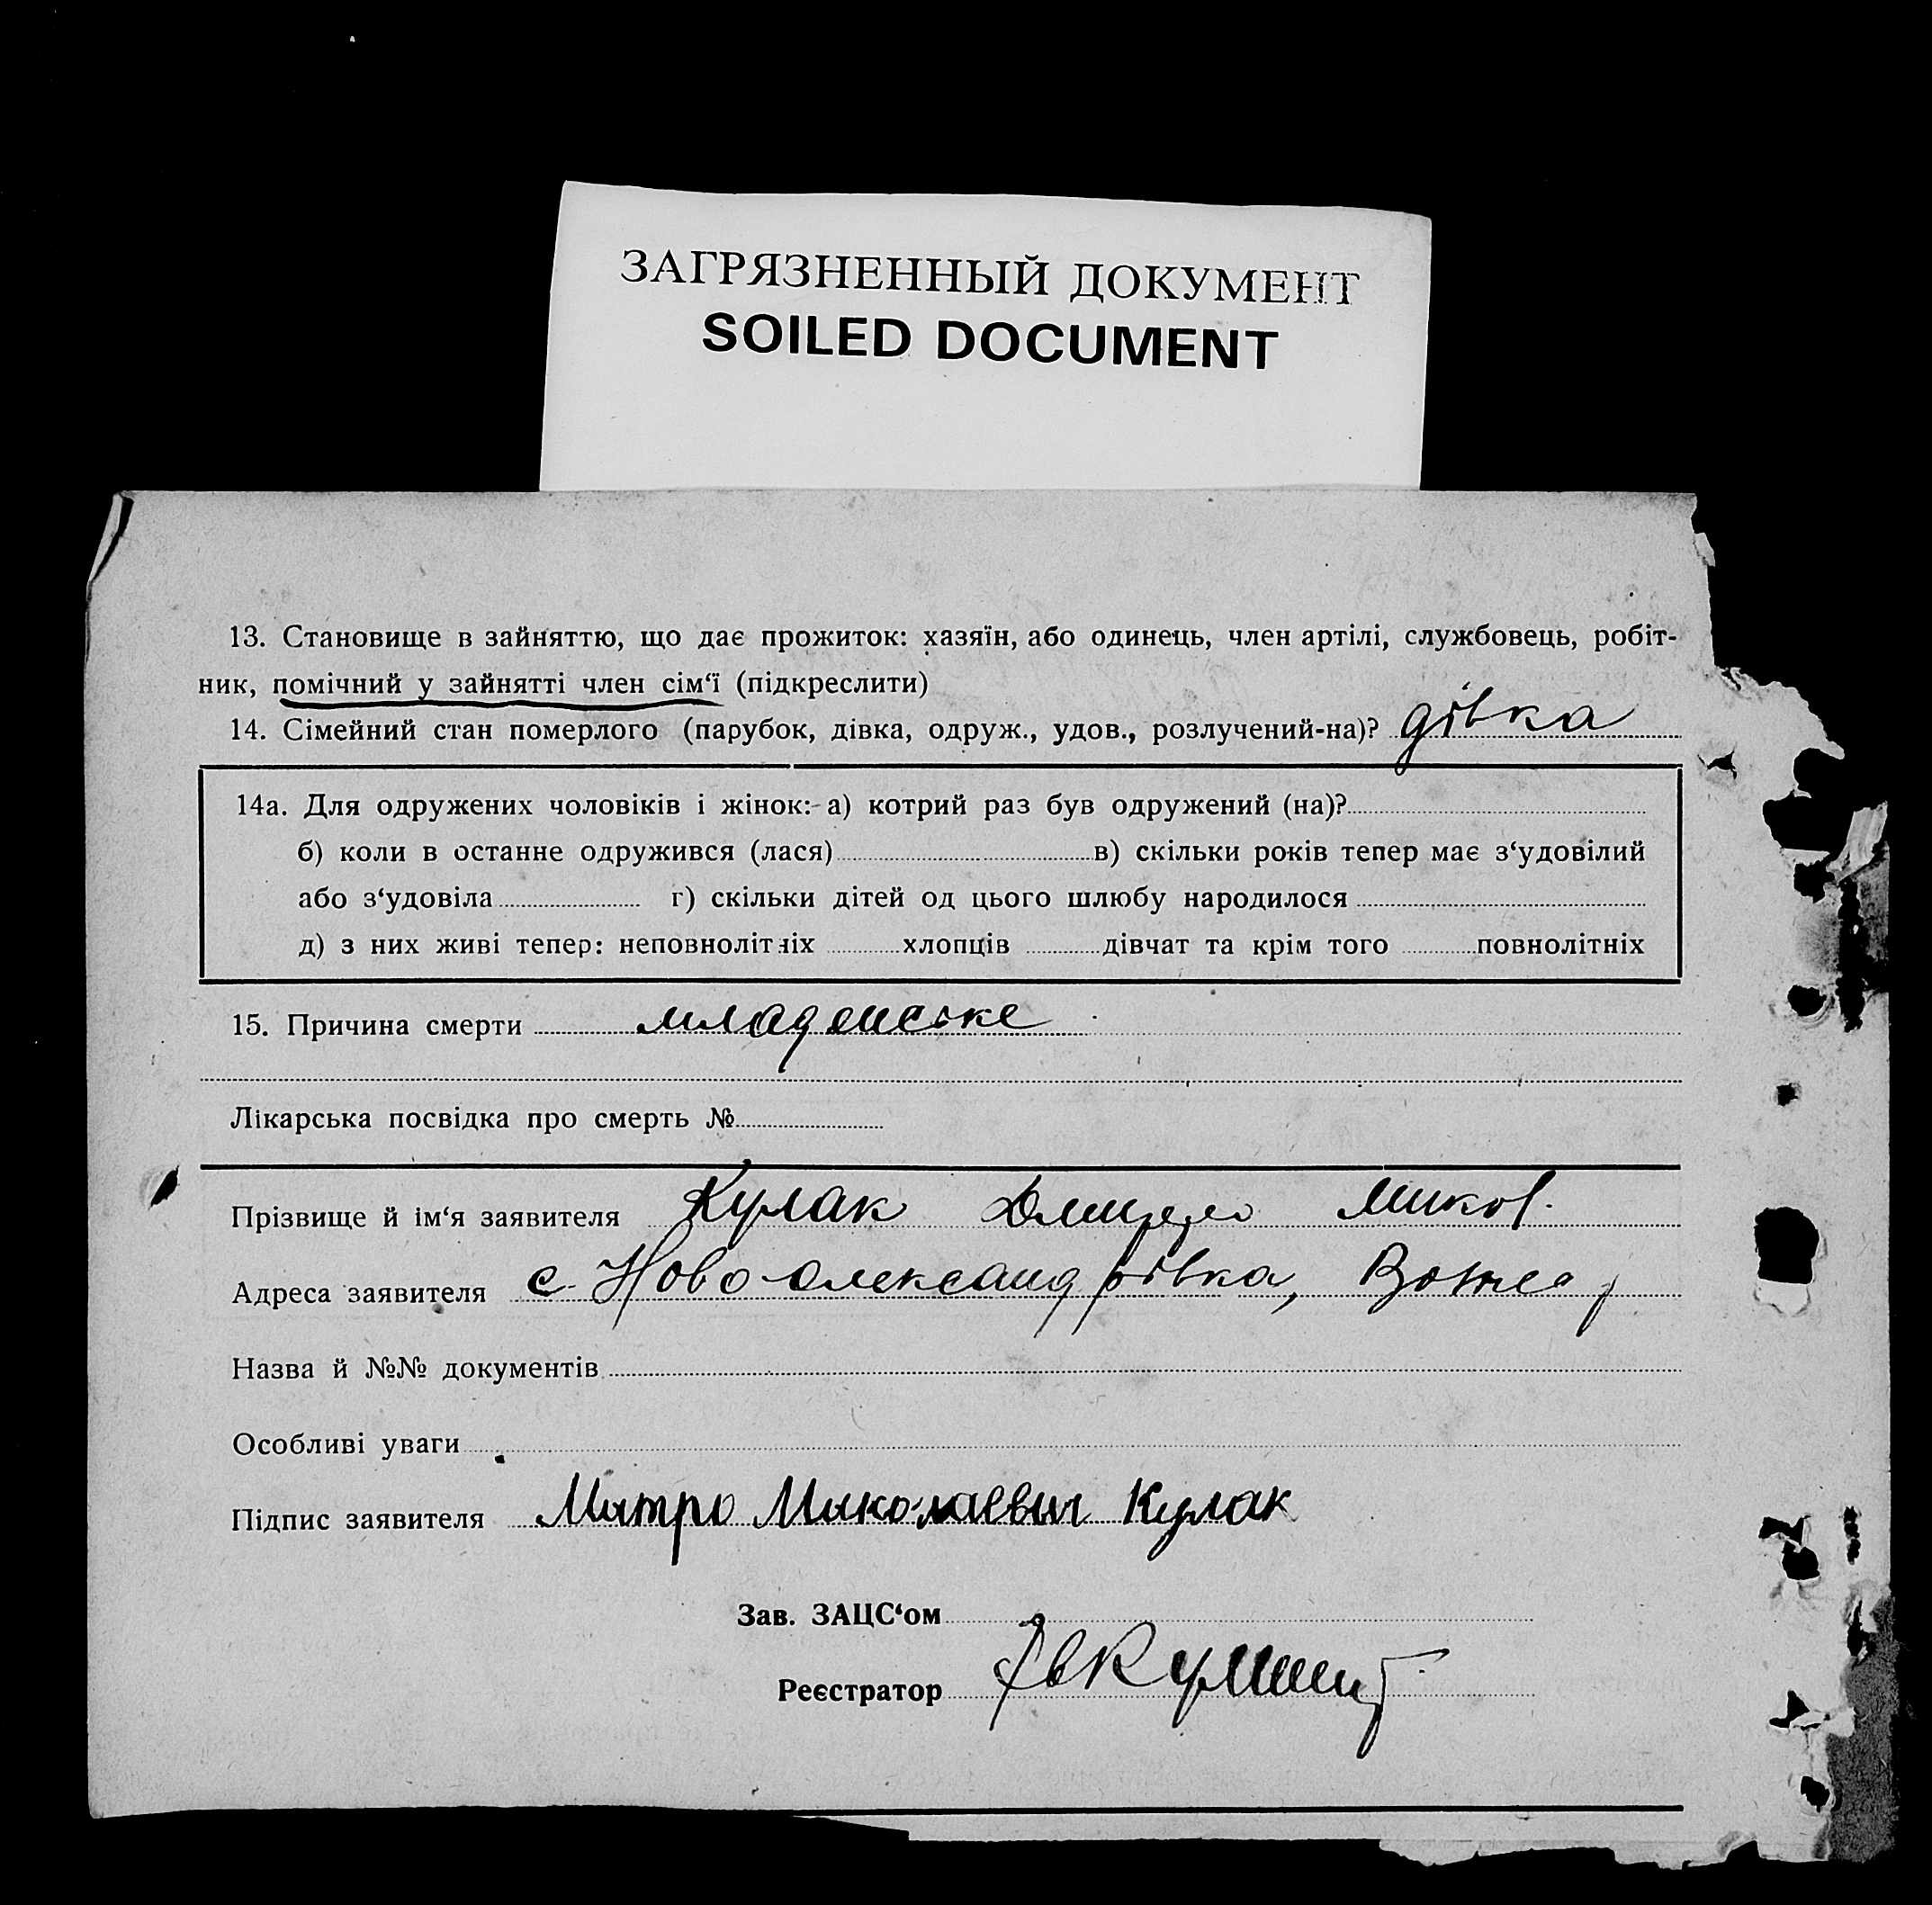 ЗАГРЯЗНЕННЫЙ ДОКУМЕНТ
SOILED DOCUMENT
13. Становище в зайняттю, що дає прожиток: хазяїн, або одинець, член артілі, службовець, робіт-
ник, помічний у зайнятті член сім‘ї (підкреслити)
14. Сімейний стан померлого (парубок, дівка, одруж., удов., розлучений-на)? дівка
14а. Для одружених чоловіків і жінок: а) котрий раз був одружений (на)?
б) коли в останне одружився (лася) в) скільки років тепер має з‘удовілий
або з‘удовіла г) скільки дітей од цього шлюбу народилося
д) з них живі тепер: неповнолітніх хлопців дівчат та крім того повнолітніх
15. Причина смерти младенське
Лікарська посвідка про смерть №
Прізвище й ім‘я заявителя Кулак Дмитро Микол.
Адреса заявителя с. Ново-олександрівка,
Назва й №№ документів
Особливі уваги
Підпис заявителя Митро Миколаевич Кулак
Зав. ЗАЦС‘ом
Реєстратор